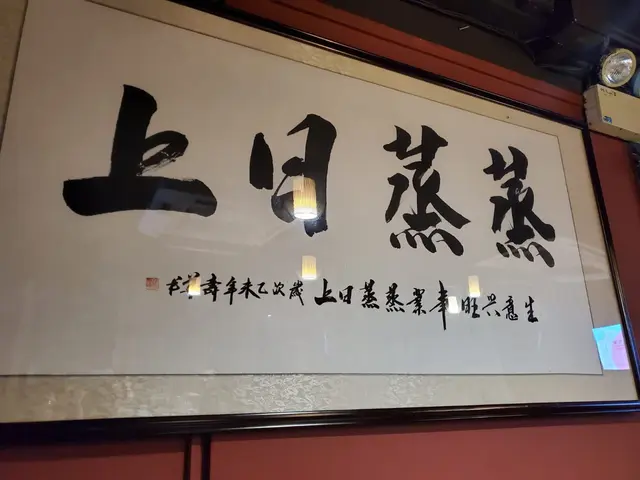 蒸蒸日上
生意兴旺事業蒸蒸日上歲次乙未年壽春书